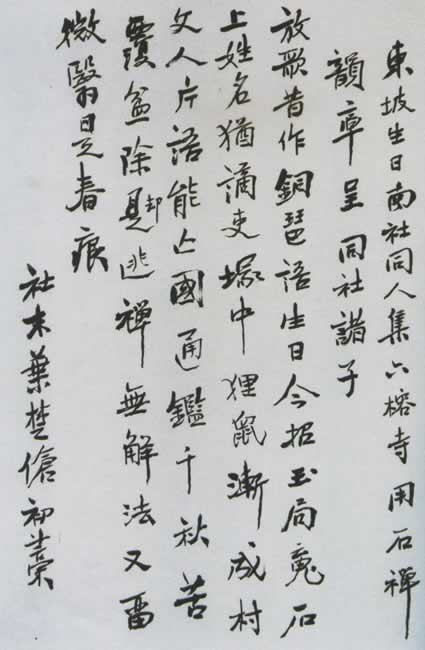 東坡生日南社同人集六榕寺用石禪
韻率呈同社諸子
放歌昔作銅琶語生日今招玉局魂石
上姓名猶謫吏塚中狸鼠漸成村
文人片語能亡國通鑑千秋苦
覆盆除却逃禪無解法又留
微翳是春痕
社末葉楚傖初藁